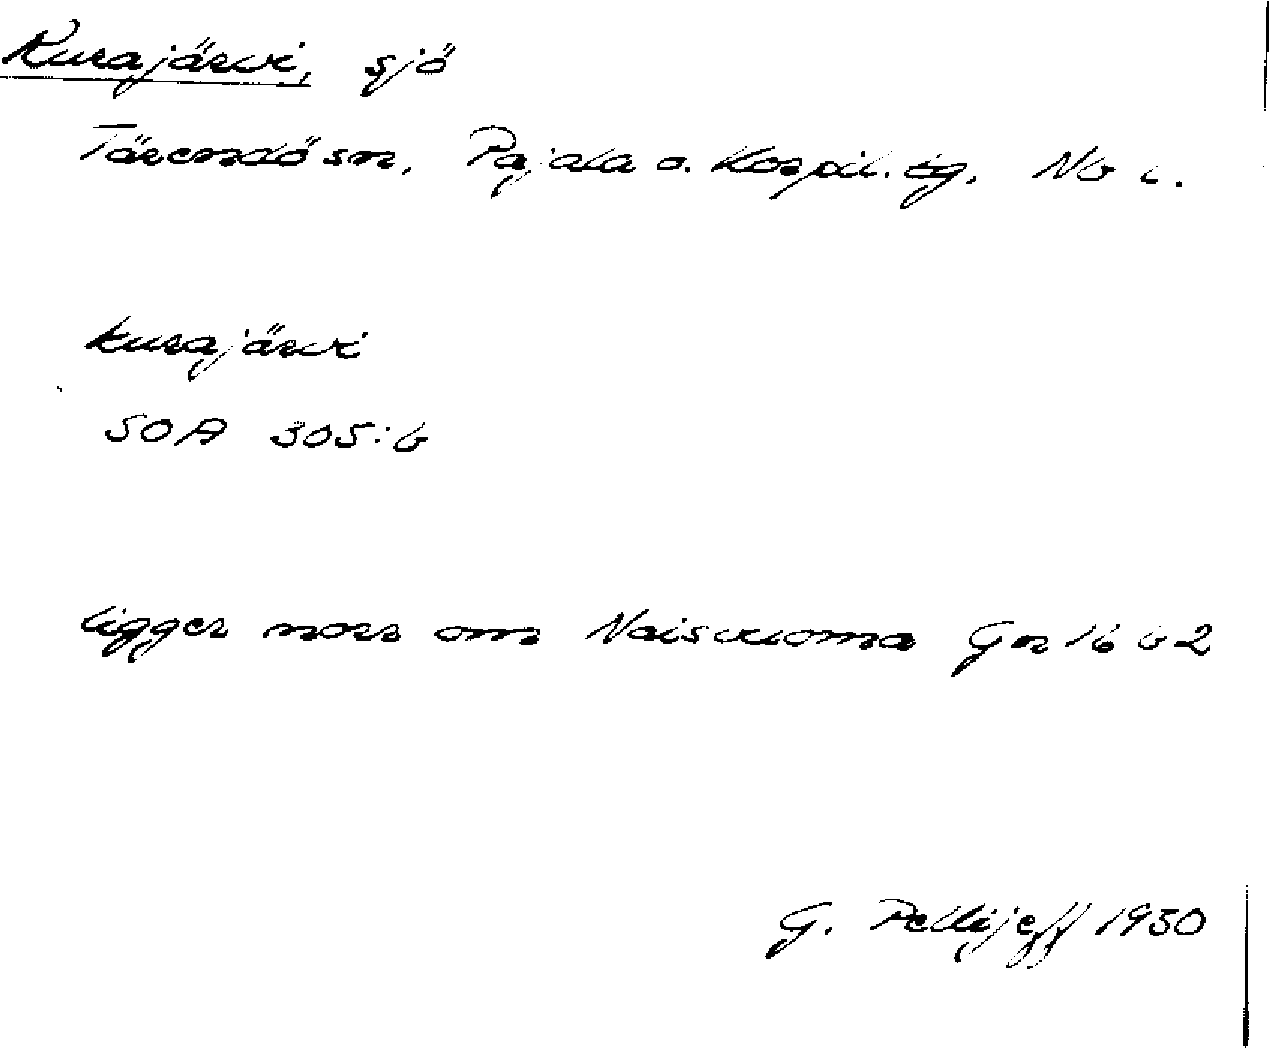 Kurajärvi, sjö
Tärendö sn, Pajala o. Korpil. tg. Nb l.
kurajärvi
SOA 305:6
ligger norr om Naisvuoma Gn 16 b 2
G. Pellijeff 1950